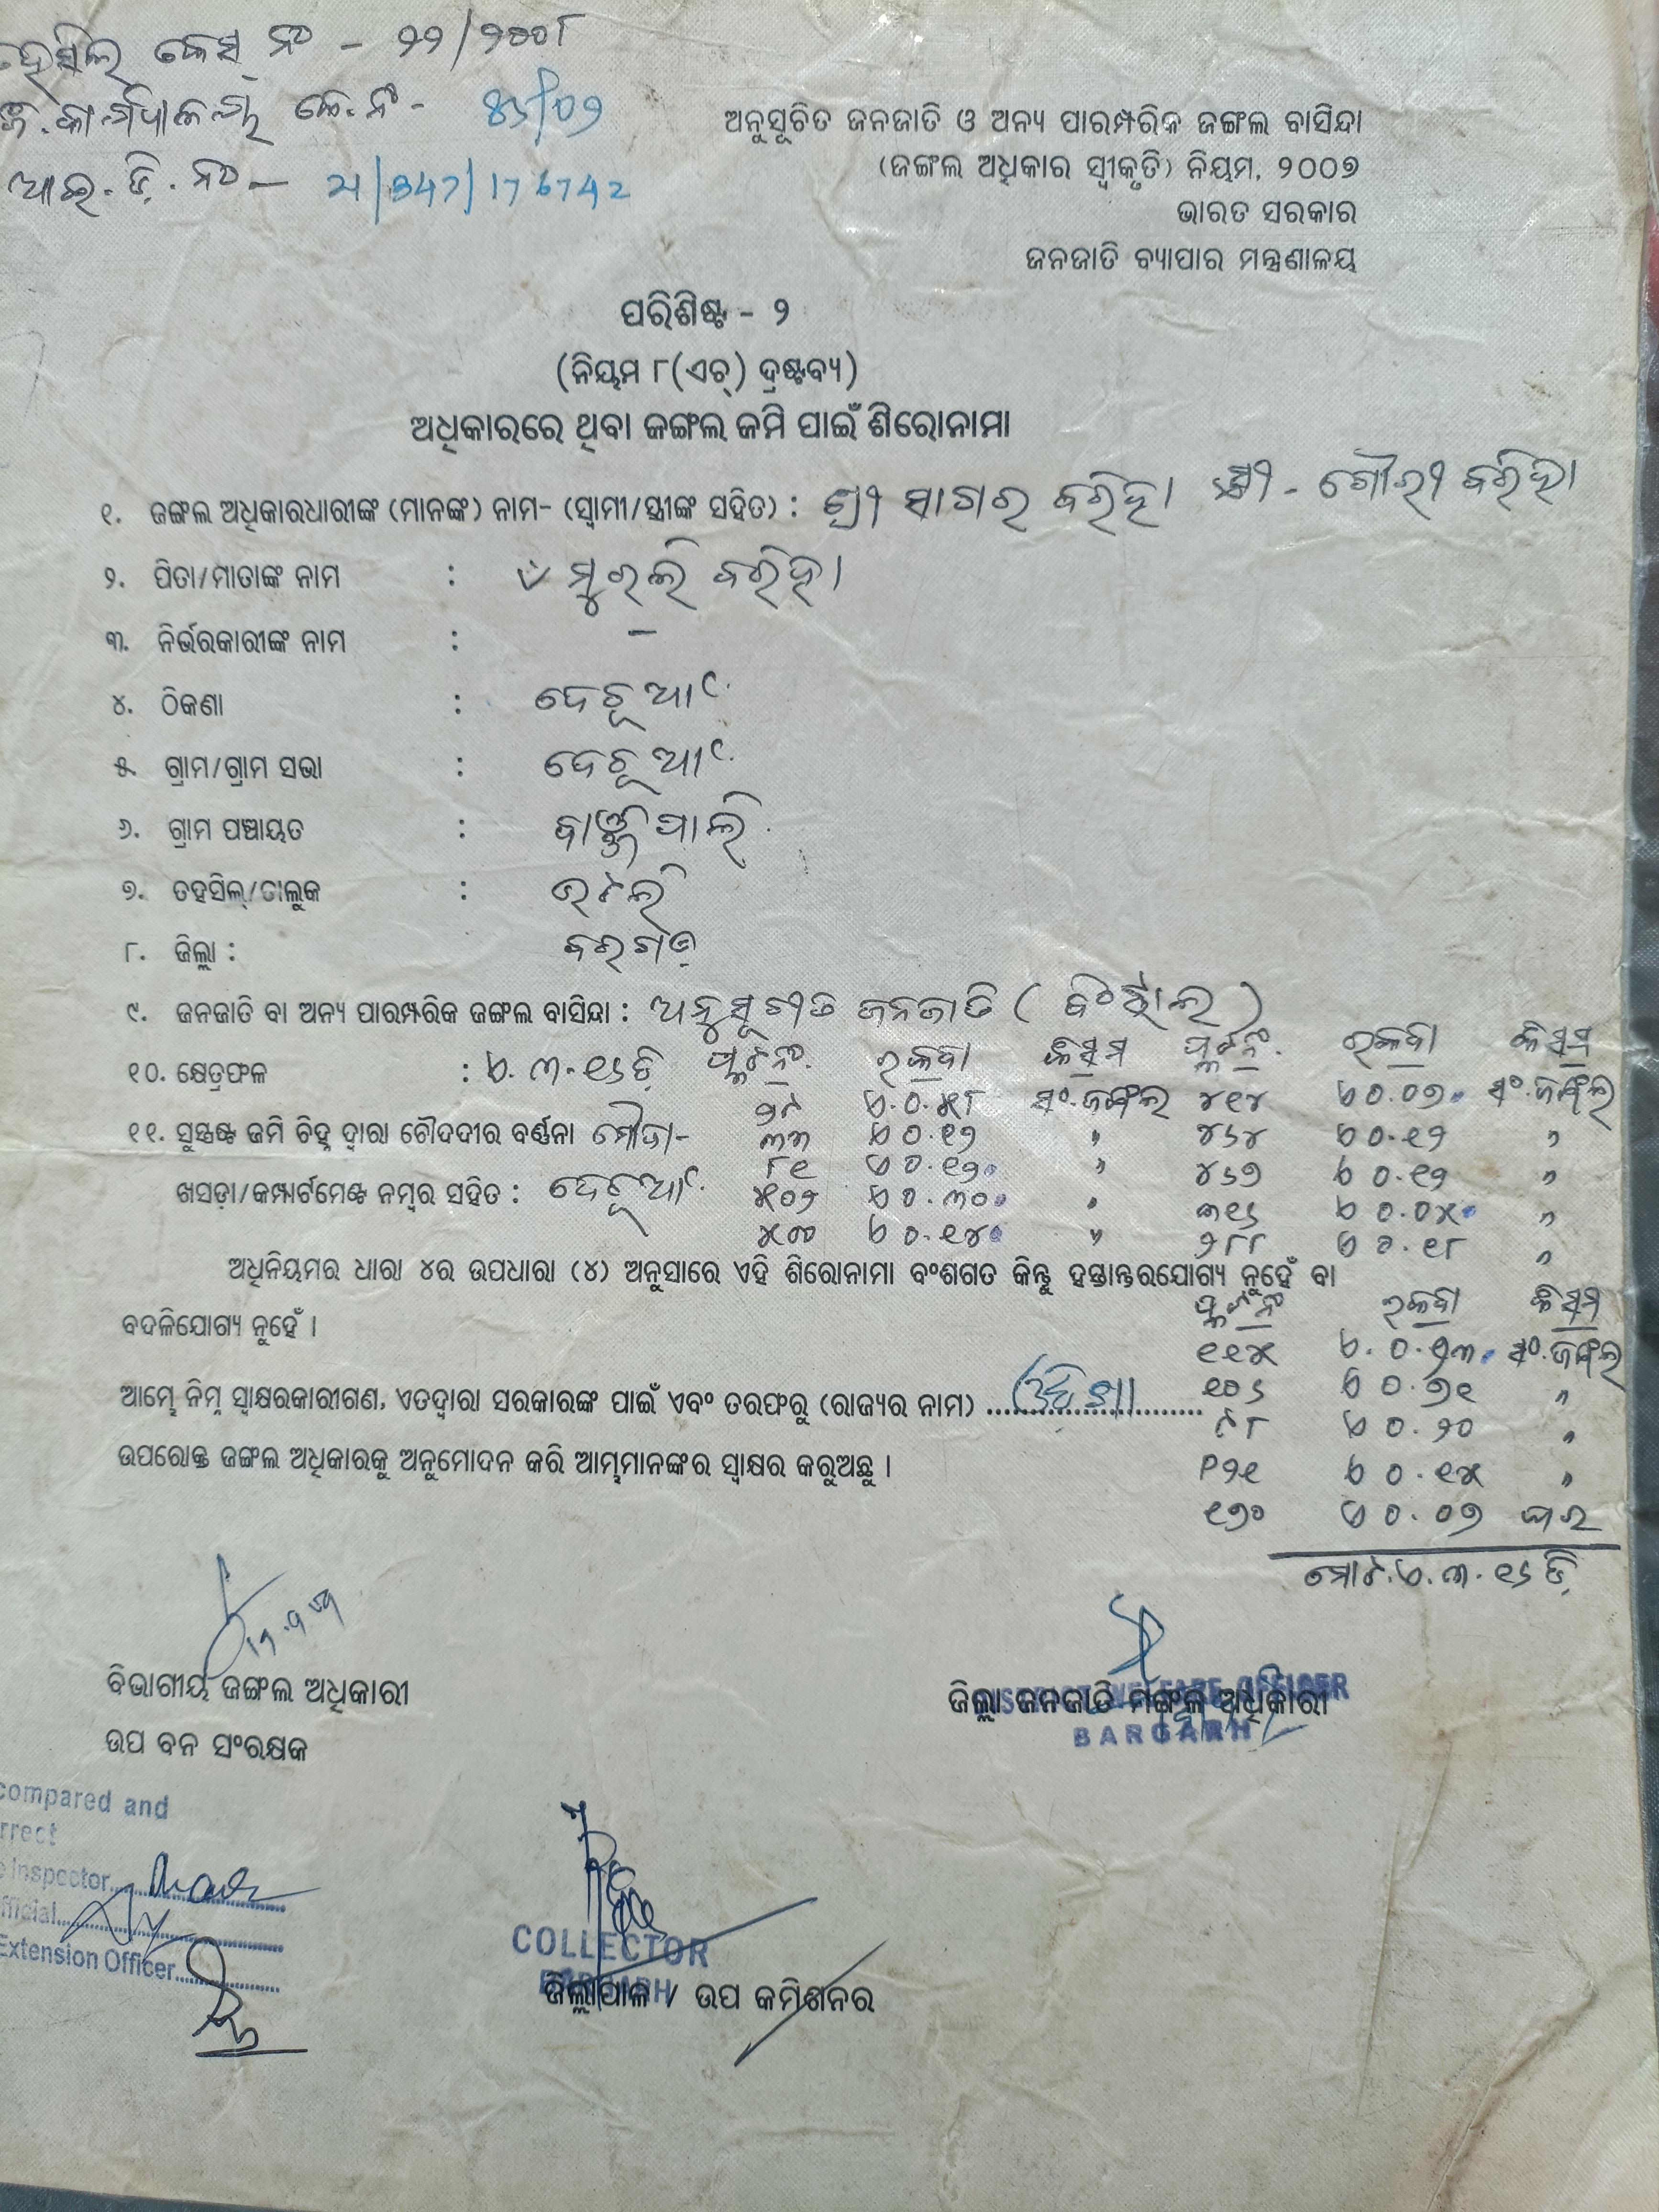 ହେସିଲ କେସ୍ ନଂ - ୨୨/୨୦୦୮
କେ.ନଂ- ୪୬/୦୨
ଆଇ.ଡି.ନଂ- 21/347/176742
ଅନୁସୂଚିତ ଜନଜାତି ଓ ଅନ୍ୟ ପାରମ୍ପରିକ ଜଙ୍ଗଲ ବାସିନ୍ଦା
(ଜଙ୍ଗଲ ଅଧିକାର ସ୍ୱୀକୃତି) ନିୟମ, ୨୦୦୭
ଭାରତ ସରକାର
ଜନଜାତି ବ୍ୟାପାର ମନ୍ତ୍ରଣାଳୟ
ପରିଶିଷ୍ଟ - ୨
(ନିୟମ ୮(ଏଚ୍) ଦ୍ରଷ୍ଟବ୍ୟ)
ଅଧିକାରରେ ଥିବା ଜଙ୍ଗଲ ଜମି ପାଇଁ ଶିରୋନାମା
୧. ଜଙ୍ଗଲ ଅଧିକାରଧାରୀଙ୍କ (ମାନଙ୍କ) ନାମ- (ସ୍ୱାମୀ/ସ୍ତ୍ରୀଙ୍କ ସହିତ) : ଶ୍ରୀ ସାଗର ବରିହା ସ୍ତ୍ରୀ - ଗୌରୀ ବରିହା
୨. ପିତା/ମାତାଙ୍କ ନାମ : ମୁରଲି ବରିହା
୩. ନିର୍ଭରକାରୀଙ୍କ ନାମ : —
୪. ଠିକଣା : ଦେଚୂଆଁ
୫. ଗ୍ରାମ/ଗ୍ରାମ ସଭା : ଦେଚୂଆଁ
୬. ଗ୍ରାମ ପଞ୍ଚାୟତ :
୭. ତହସିଲ୍/ତାଲୁକ : ଭଟଲି
୮. ଜିଲ୍ଲା : ବରଗଡ଼
୯. ଜନଜାତି ବା ଅନ୍ୟ ପାରମ୍ପରିକ ଜଙ୍ଗଲ ବାସିନ୍ଦା : ଅନୁସୂଚୀତ ଜନଜାତି (ବିଂଝାଲ)
୧୦. କ୍ଷେତ୍ରଫଳ : ଏ.୩.୧୬ଡି ପ୍ଲଟନଂ. ରକବା କିସମ ପ୍ଲଟନଂ. ରକବା କିସମ
୨୯ ଏ.୦.୫୮ ସଂ.ଜଙ୍ଗଲ ୪୧୪ ଏ ୦.୦୭ ସଂ.ଜଙ୍ଗଲ
୧୧. ସୁସ୍ପଷ୍ଟ ଜମି ଚିହ୍ନ ଦ୍ୱାରା ଚୌଦ୍ଦୀର ବର୍ଣ୍ଣନା ମୌଜା- ୩୩ ଏ ୦.୧୨ " ୪୬୪ ଏ ୦.୧୨ "
୮୧ ଏ ୦.୧୨ " ୪୬୭ ଏ ୦.୧୨ "
ଖସଡ଼ା/କମ୍ପାର୍ଟମେଣ୍ଟ ନମ୍ବର ସହିତ : ଦେଚୂଆଁ ୫୦୨ ଏ ୦.୩୦ " ୩୧୬ ଏ ୦.୦୫ "
୫୦୦ ଏ ୦.୧୪ " ୨୮୮ ଏ ୦.୧୮ "
ଅଧିନିୟମର ଧାରା ୪ର ଉପଧାରା (୪) ଅନୁସାରେ ଏହି ଶିରୋନାମା ବଂଶଗତ କିନ୍ତୁ ହସ୍ତାନ୍ତରଯୋଗ୍ୟ ନୁହେଁ ବା
ବଦଳିଯୋଗ୍ୟ ନୁହେଁ ।
ପ୍ଲଟନଂ ରକବା କିସମ
୧୧୫ ଏ.୦.୭୩ ସଂ.ଜଙ୍ଗଲ
ଆମ୍ଭେ ନିମ୍ନ ସ୍ୱାକ୍ଷରକାରୀଗଣ, ଏତଦ୍ୱାରା ସରକାରଙ୍କ ପାଇଁ ଏବଂ ତରଫରୁ (ରାଜ୍ୟର ନାମ) ଓଡ଼ିଶା
୧୦୬ ଏ ୦.୭୧ "
୯୮ ଏ ୦.୨୦ "
ଉପରୋକ୍ତ ଜଙ୍ଗଲ ଅଧିକାରକୁ ଅନୁମୋଦନ କରି ଆମ୍ଭମାନଙ୍କର ସ୍ୱାକ୍ଷର କରୁଅଛୁ ।
ଏ ୦.୧୫ "
୧୭୦ ଏ ୦.୦୭ ଘର
ମୋଟ.ଏ.୩.୧୬ ଡି
ବିଭାଗୀୟ ଜଙ୍ଗଲ ଅଧିକାରୀ
ଉପ ବନ ସଂରକ୍ଷକ
ଜିଲ୍ଲା ଜନଜାତି ମଙ୍ଗଳ ଅଧିକାରୀ
DISTRICT WELFARE OFFICER
BARGARH
compared and
rrect
e Inspector
fficial
Extension Officer
COLLECTOR
BARGARH
ଜିଲ୍ଲାପାଳ / ଉପ କମିଶନର